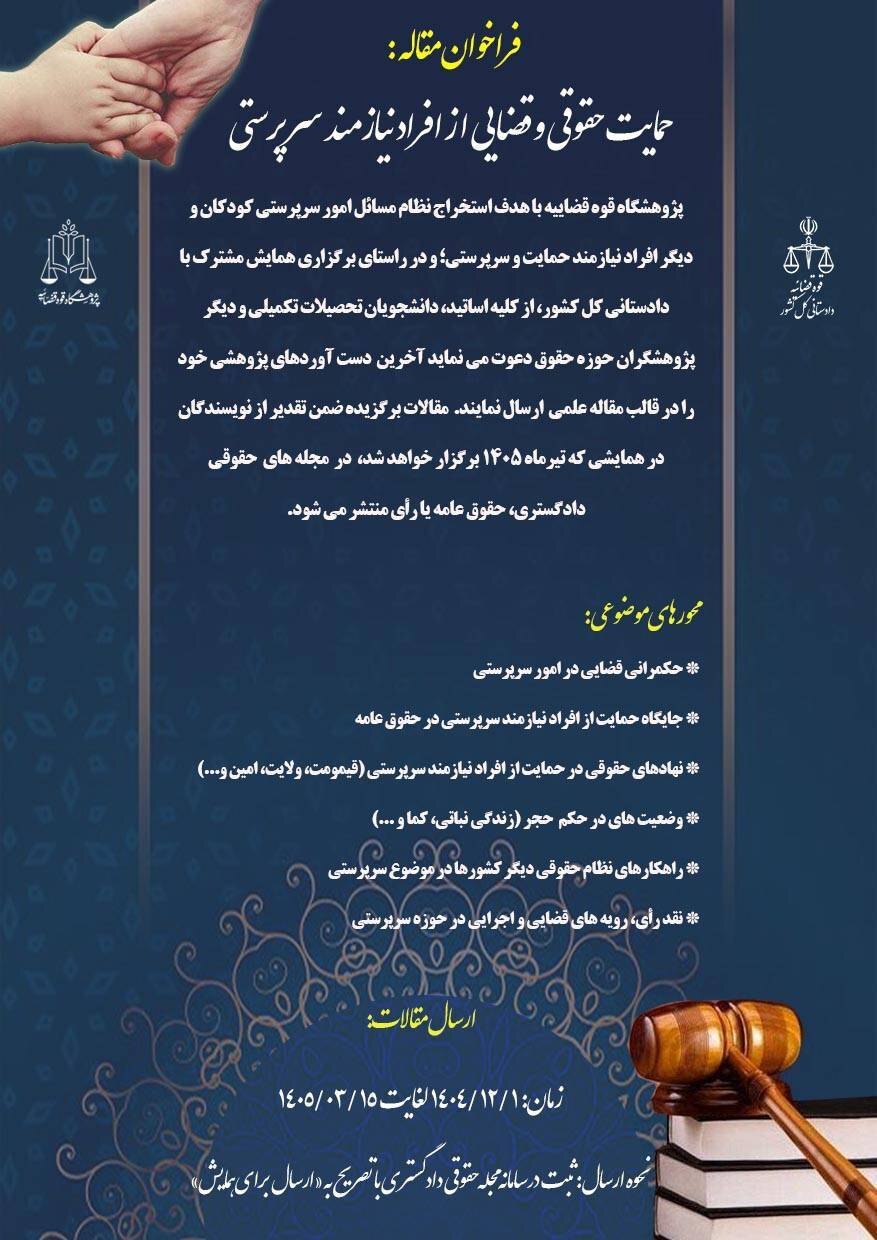 فراخوان مقاله:
حمایت حقوقی و قضایی از افراد نیازمند سرپرستی
پژوهشگاه قوه قضاییه با هدف استخراج نظام مسائل امور سرپرستی کودکان و
دیگر افراد نیازمند حمایت و سرپرستی؛ و در راستای برگزاری همایش مشترک با
دادستانی کل کشور، از کلیه اساتید، دانشجویان تحصیلات تکمیلی و دیگر
پژوهشگران حوزه حقوق دعوت می نماید آخرین دست آوردهای پژوهشی خود
را در قالب مقاله علمی ارسال نمایند. مقالات برگزیده ضمن تقدیر از نویسندگان
در همایشی که تیرماه ۱۴۰۵ برگزار خواهد شد، در مجله های حقوقی
دادگستری، حقوق عامه یا رأی منتشر می شود.
قوه قضائیه
دادستانی کل کشور
پژوهشگاه قوه قضائیه
محورهای موضوعی:
* حکمرانی قضایی در امور سرپرستی
* جایگاه حمایت از افراد نیازمند سرپرستی در حقوق عامه
* نهادهای حقوقی در حمایت از افراد نیازمند سرپرستی (قیمومت، ولایت، امین و...)
* وضعیت های در حکم حجر (زندگی نباتی، کما و ...)
* راهکارهای نظام حقوقی دیگر کشورها در موضوع سرپرستی
* نقد رأی، رویه های قضایی و اجرایی در حوزه سرپرستی
ارسال مقالات:
زمان: ۱۴۰۴/۱۲/۱ لغایت ۱۴۰۵/۰۳/۱۵
نحوه ارسال: ثبت در سامانه مجله حقوقی دادگستری با تصریح به «ارسال برای همایش»